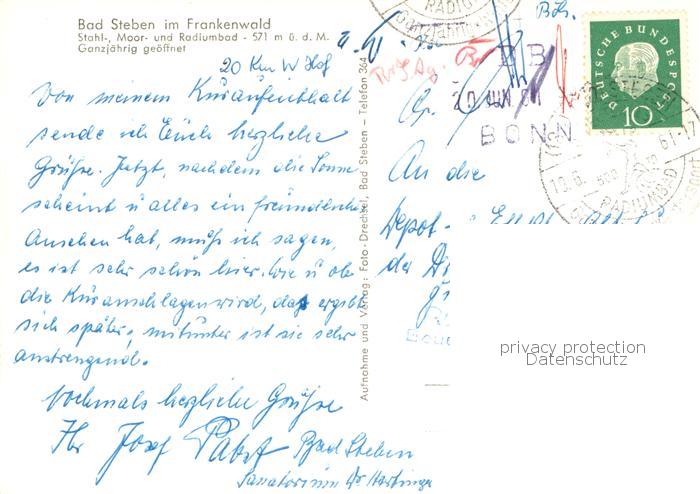 Bad Steben im Frankenwald
Stahl-, Moor- und Radiumbad - 571 m ü. d. M.
Ganzjährig geöffnet
20 Km W Hof
Von meinem Kuraufenthalt
sende ich Euch herzliche
Grüsse. Jetzt, nachdem die Sonne
scheint u alles ein freundliches
Aussehen hat, muss ich sagen,
es ist sehr schön hier. Wie u ob
die Kur anschlagen wird, das ergibt
sich später, mitunter ist sie sehr
anstrengend.
Nochmals herzliche Grüsse
Ihr Josef Pabst Bad Steben
Sanatorium Dr
Aufnahme und Verlag: Foto-Drechsel, Bad Steben - Telefon 364
Böh.
BB
20 JUN 61
BONN
DEUTSCHE BUNDESPOST
10
RADIUMBAD
An die
Depot-
der
privacy protection
Datenschutz